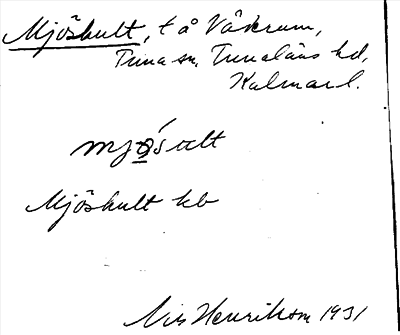 Mjöshult, t å Våkrum,
Tuna sn, Tunaläns hd,
Kalmar l.
mjo̲´sult
Mjöshult kb
Nils Henrikson 1931